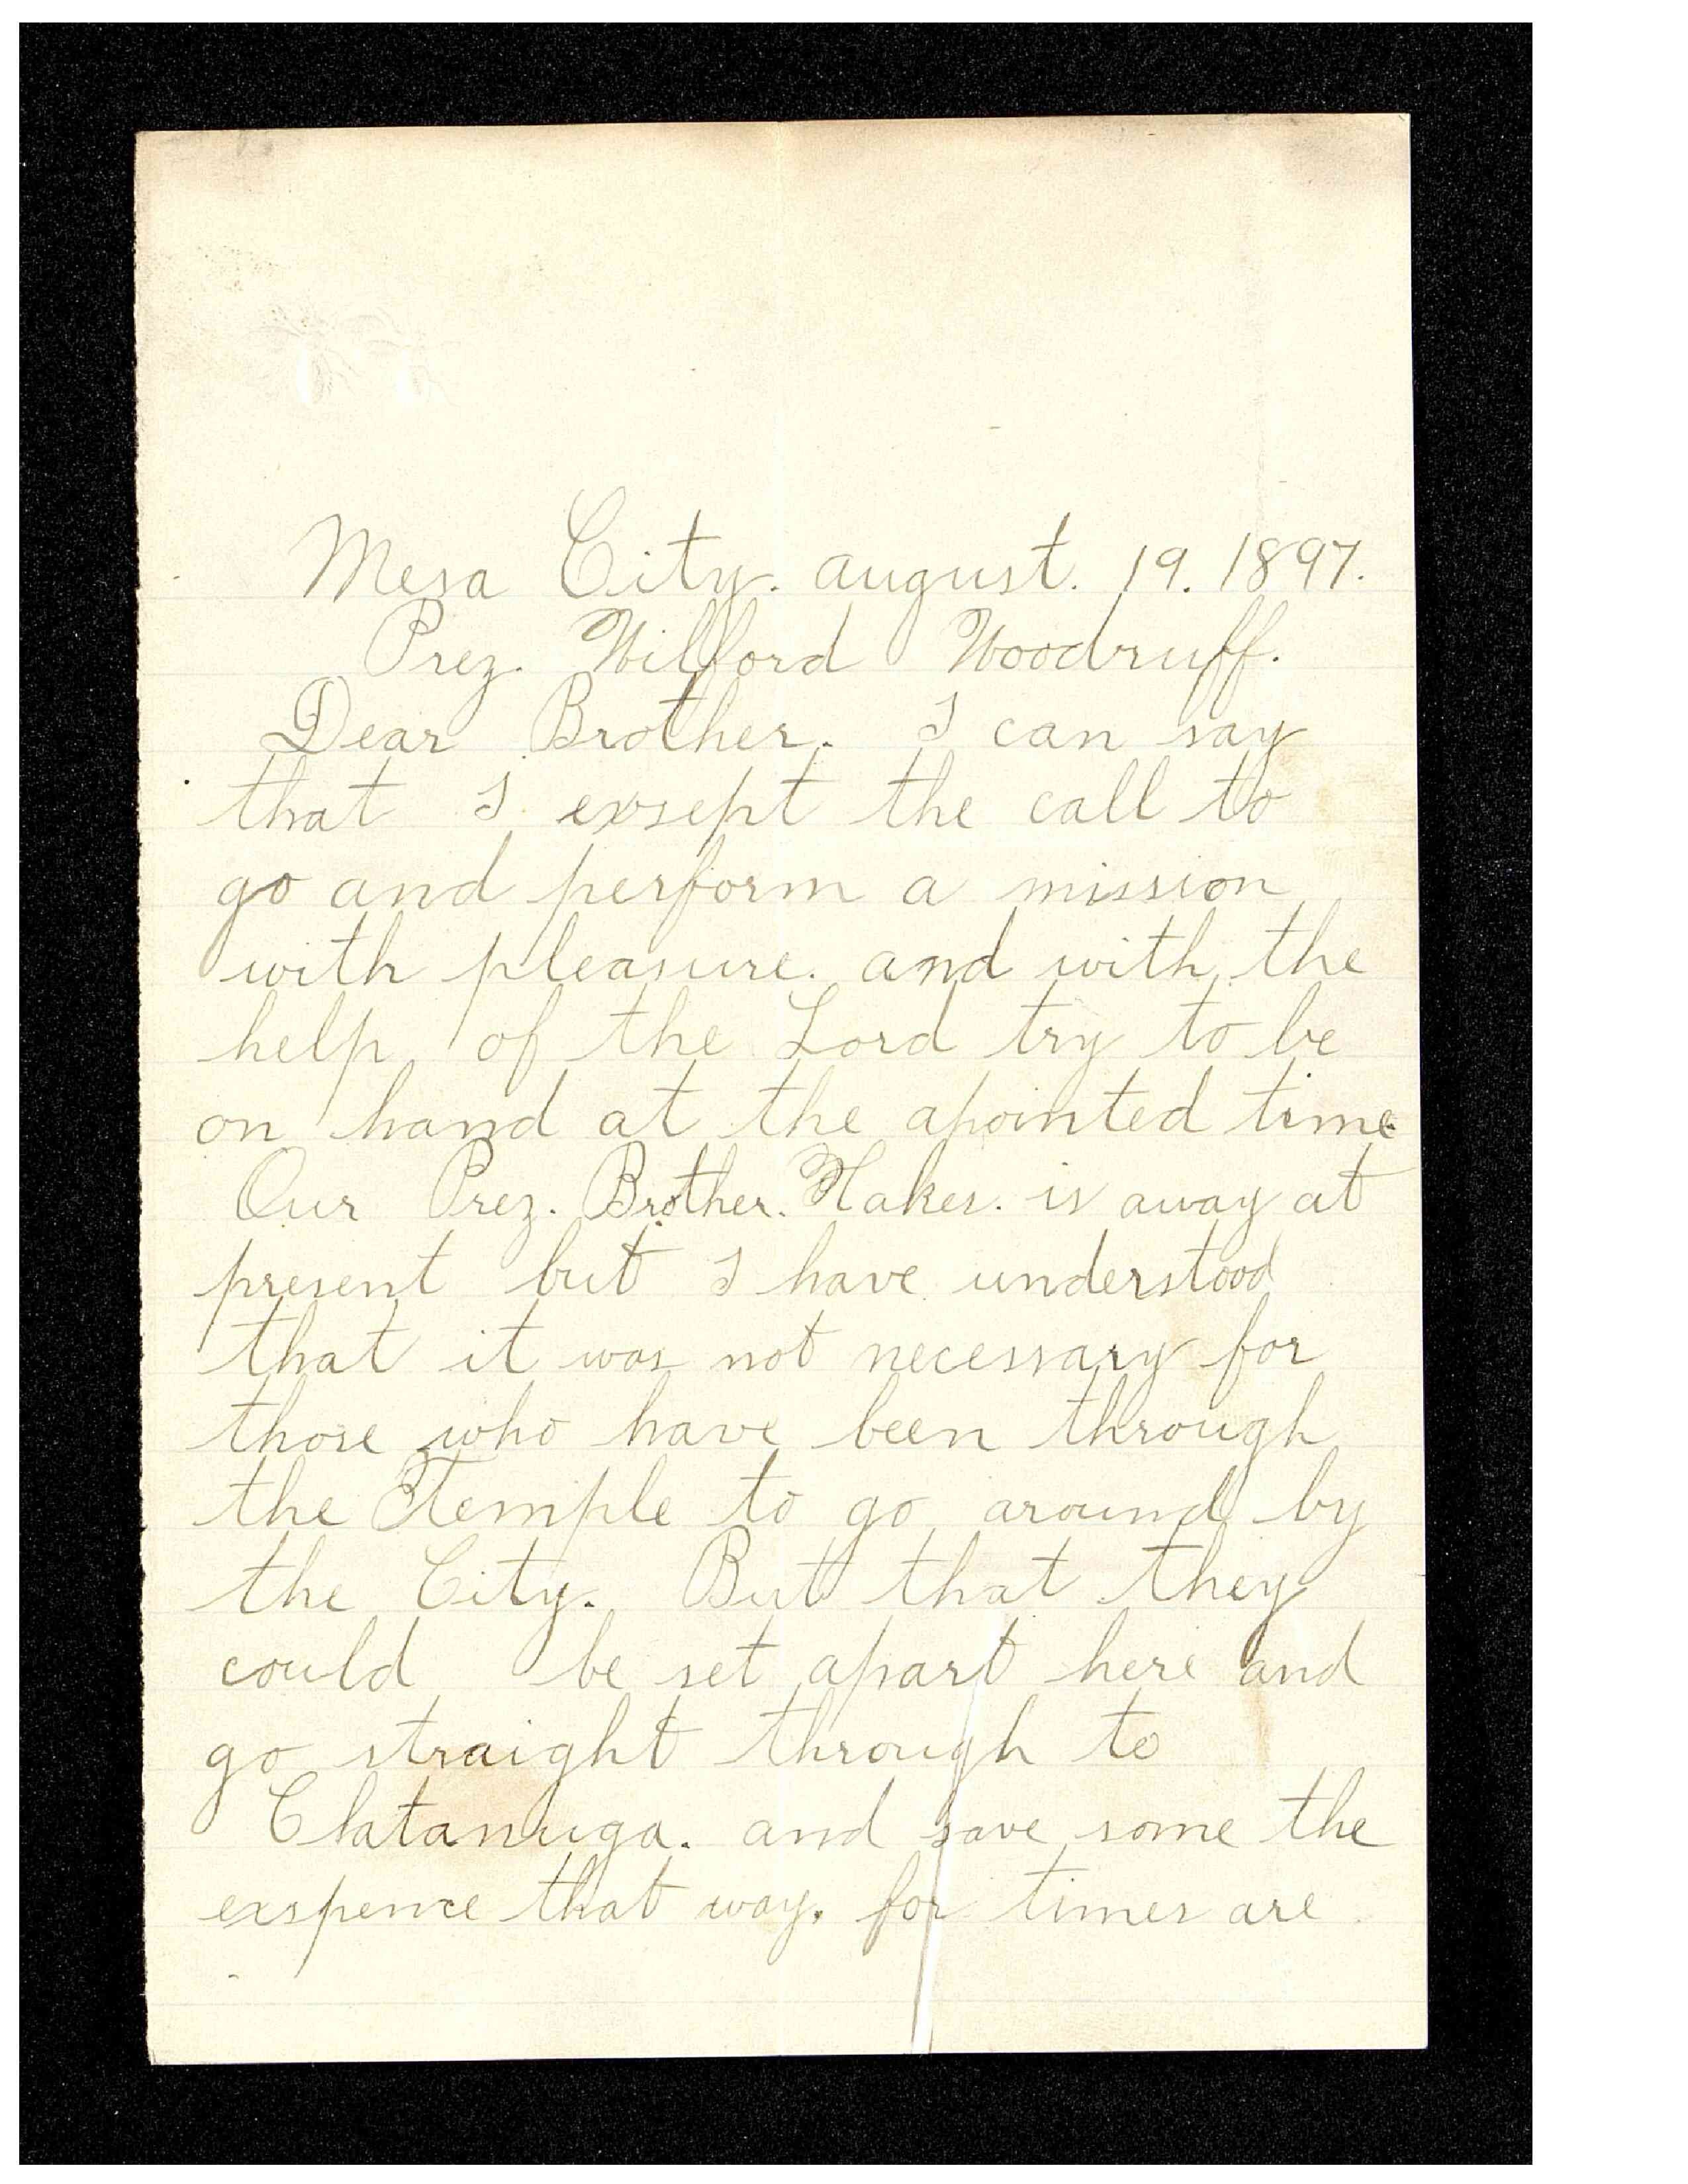 Mesa City. august. 19. 1897.
Prez. Wilford Woodruff.
Dear Brother. I can say
that I exsept the call to
go and perform a mission
with pleasure. and with the
help of the Lord try to be
on hand at the apointed time
Our Prez. Brother. Nakes. is away at
present but I have understood
that it was not necessary for
those who have been through
the Temple to go around by
the City. But that they
could be set apart here and
go straight through to
Chatanuga. and save some the
exspence that way. for times are